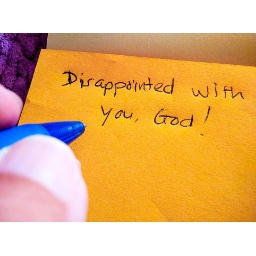 Disappointed with
you, God!